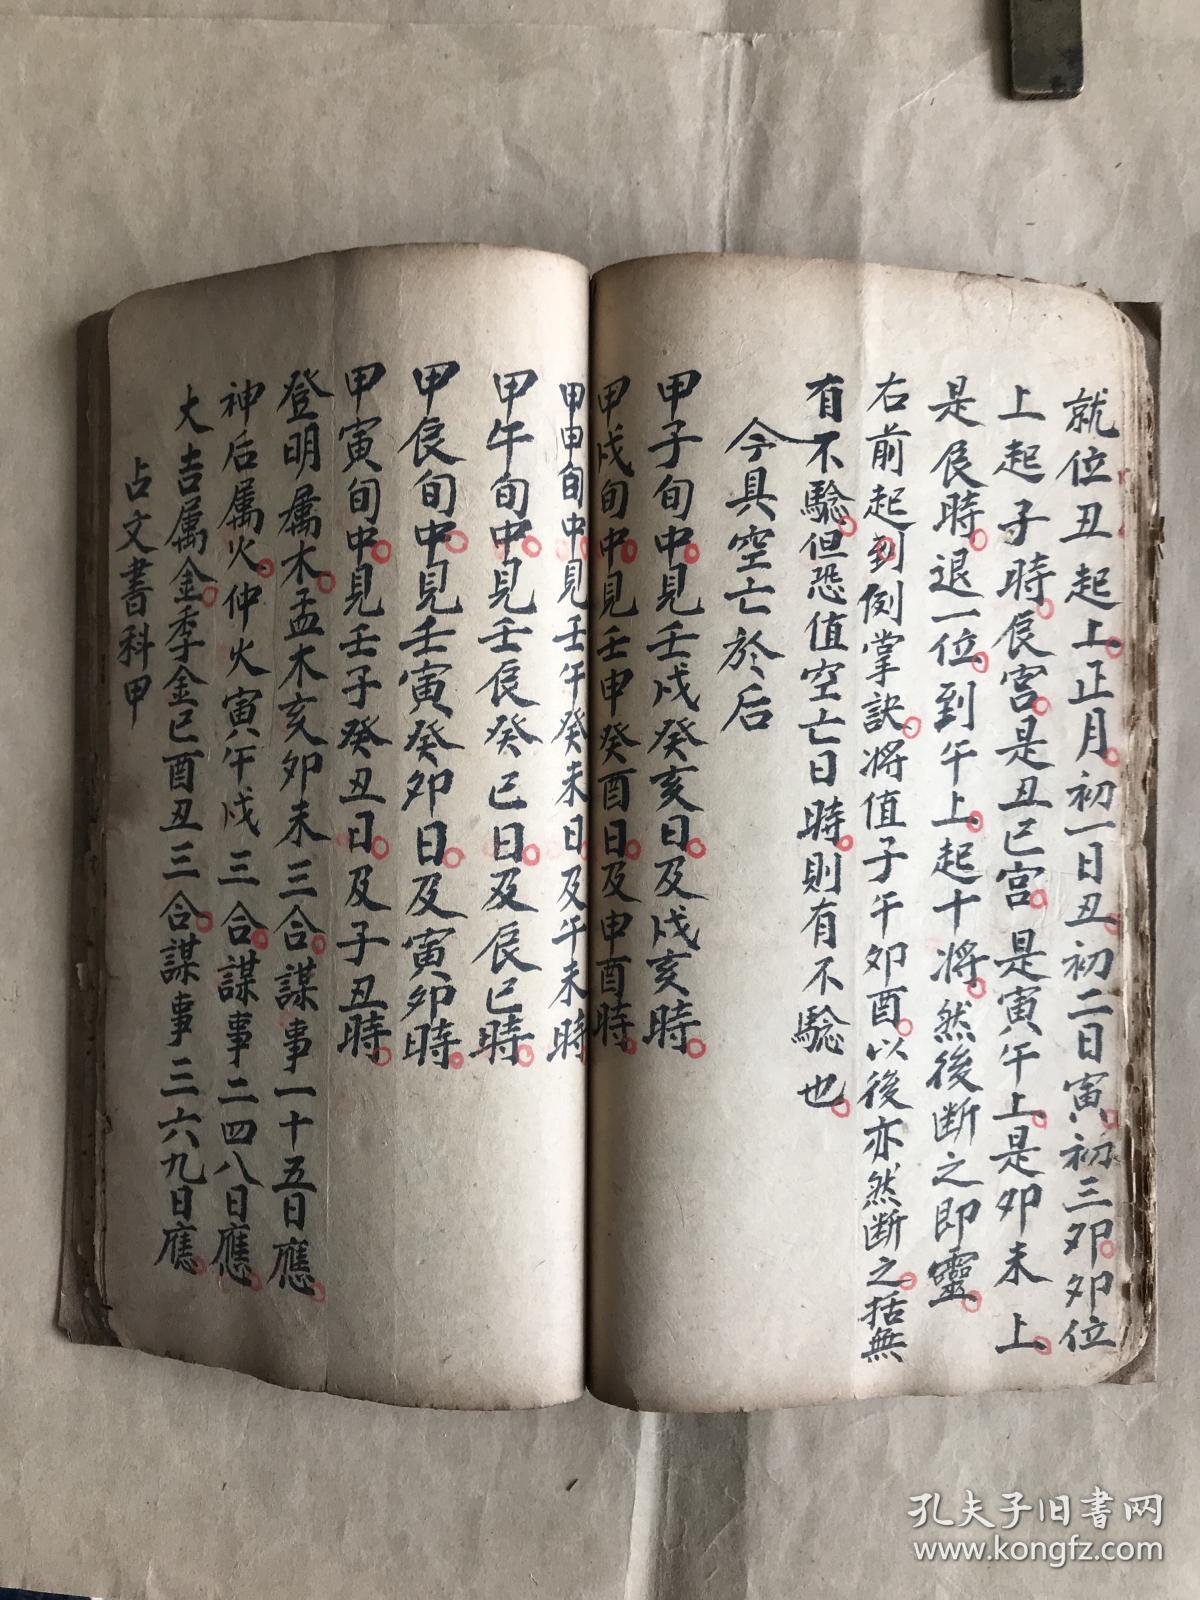 就位丑起上正月初一日丑初二日寅初三卯卯位
上起子時辰宮是丑巳宮是寅午上是卯未上
是辰時退一位到午上起十將然後断之即靈
右前起到例掌訣将值子午卯酉以後亦然断之括無
有不驗但恐值空亡日時則有不驗也
今具空亡於后
甲子旬中見壬戌癸亥日及戌亥時
甲戌旬中見壬申癸酉日及申酉時
甲申旬中見壬午癸未日及午未時
甲午旬中見壬辰癸巳日及辰巳時
甲辰旬中見壬寅癸卯日及寅卯時
甲寅旬中見壬子癸丑日及子丑時
登明属木孟木亥卯未三合謀事一十五日應
神后属火仲火寅午戌三合謀事二四八日應
大吉属金季金巳酉丑三合謀事三六九日應
占文書科甲
孔夫子旧書网
www.kongfz.com